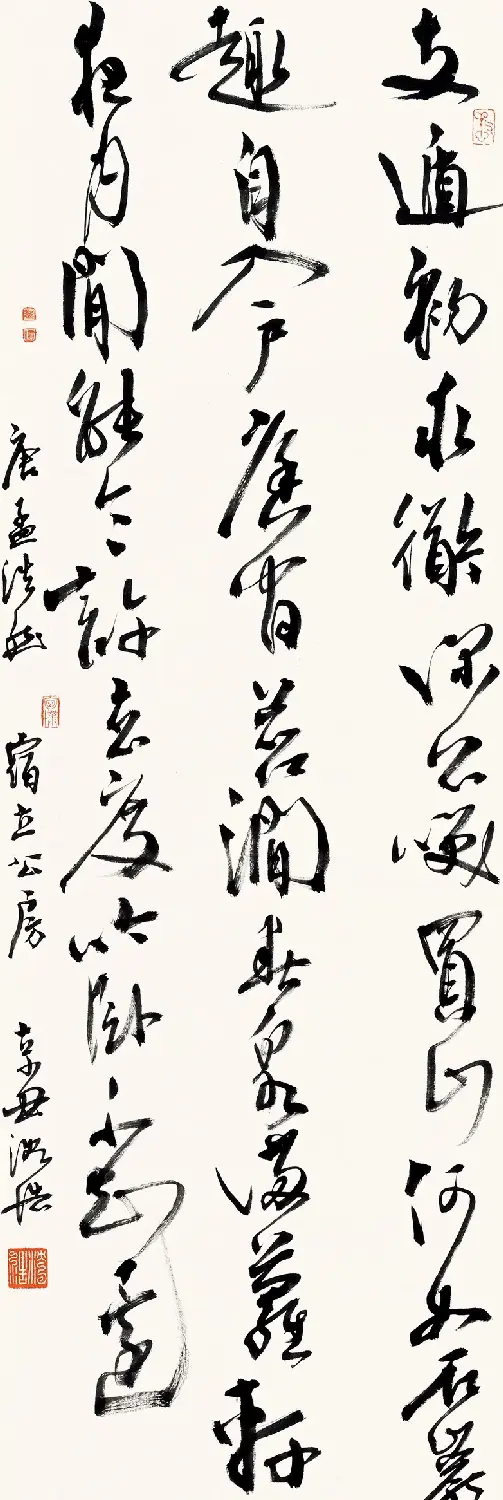 支遁初求衜深公咲買山何如石巖
趣自入户庭間苔澗春泉滿蘿軒
夜月閒能令許玄度吟卧不知還
唐孟浩然 宿立公房 辛丑